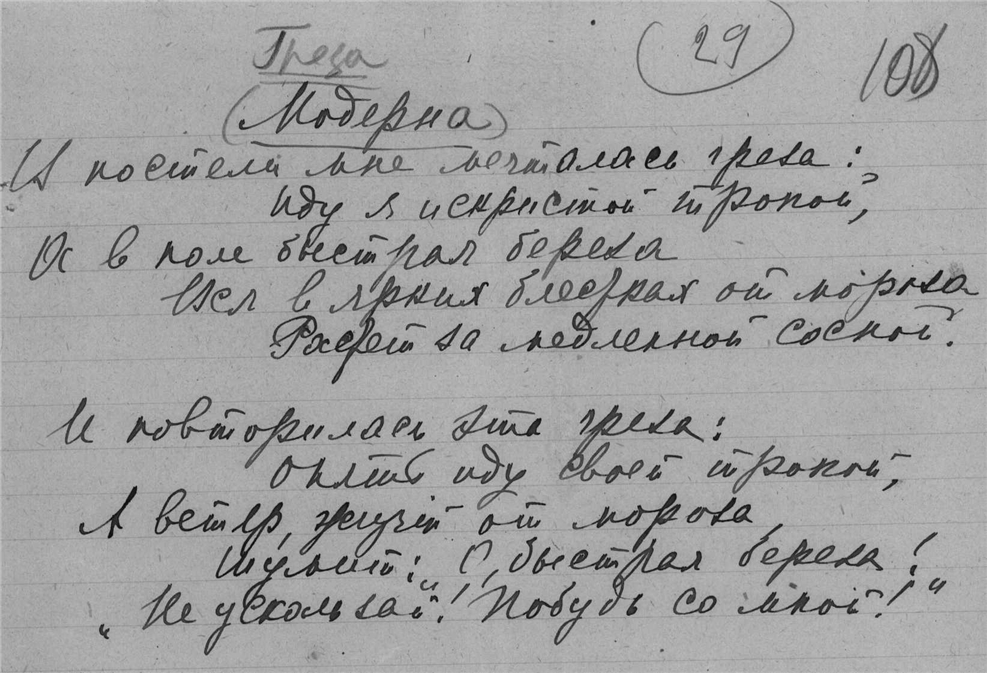 Греза
29
108
(Модерна)
В постели мне мечталась греза:
Иду я искристой тропой,
А в поле быстрая береза
Вся в ярких блестках от мороза
Растет за медленной сосной.
И повторилась эта греза:
Опять иду своей тропой,
А ветер, жгучий от мороза,
Шумит: „О, быстрая береза!
„Не ускользай! Побудь со мной!“